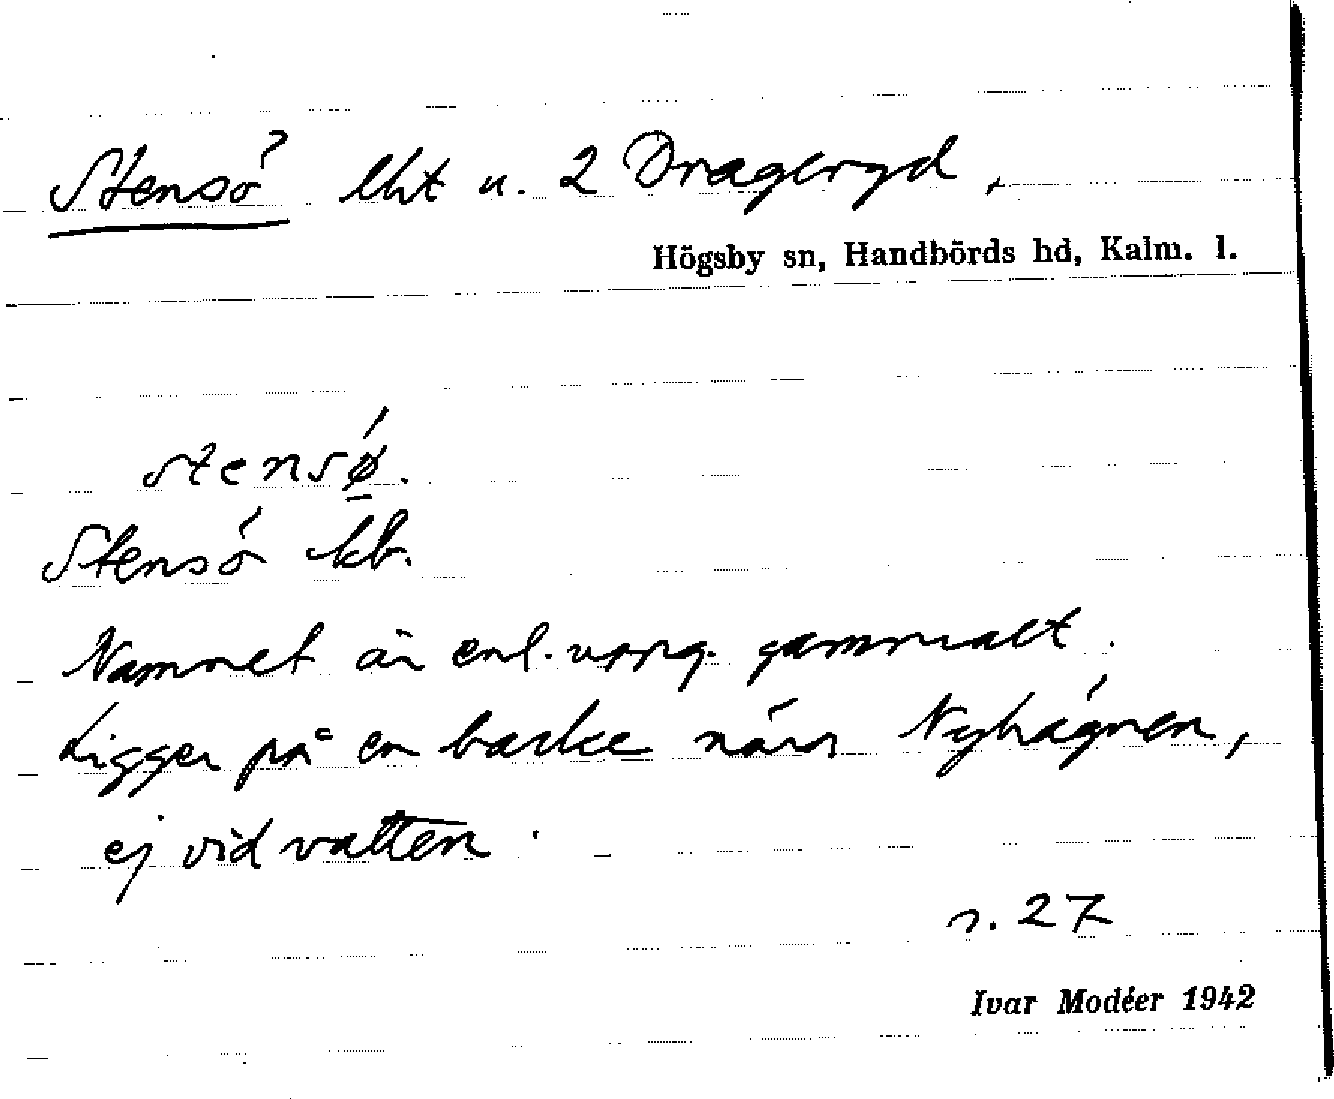 Stensö? lht u. 2 Drageryd,
Högsby sn, Handbörds hd, Kalm. l.
stensǿ̱.
Stensö kb.
Namnet är enl. uppg. gammalt.
Ligger på en backe nära Nyhagnen,
ej vid vatten.
s. 27
Ivar Modéer 1942